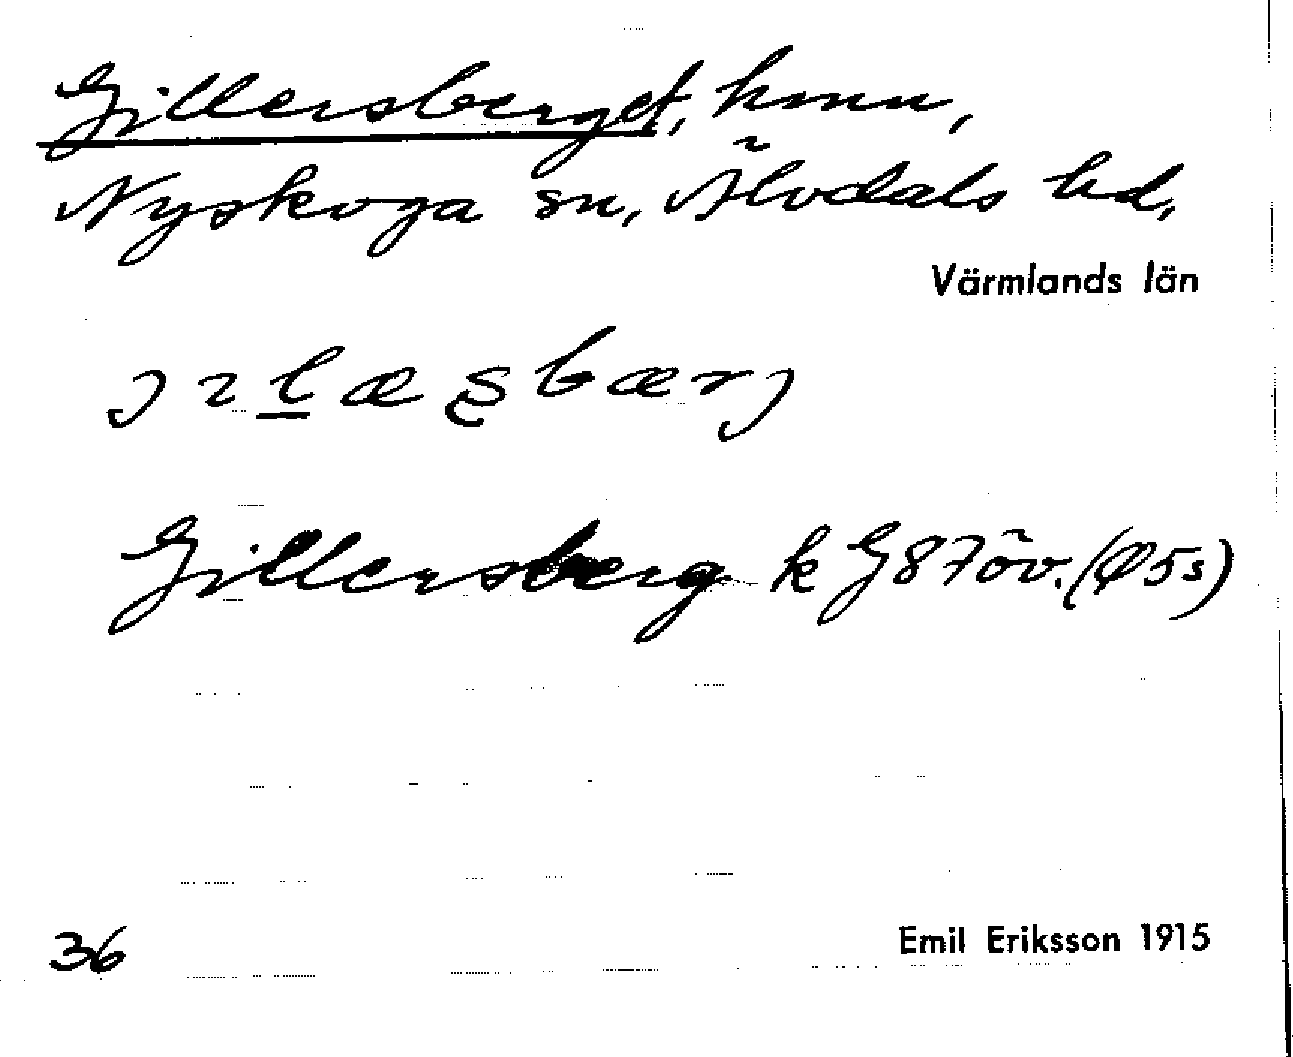 Gillersberget, hmn,
Nyskoga sn, Älvdals hd,
Värmlands län
Gillersberg k G87öv. (Ø5s)
36
Emil Eriksson 1915